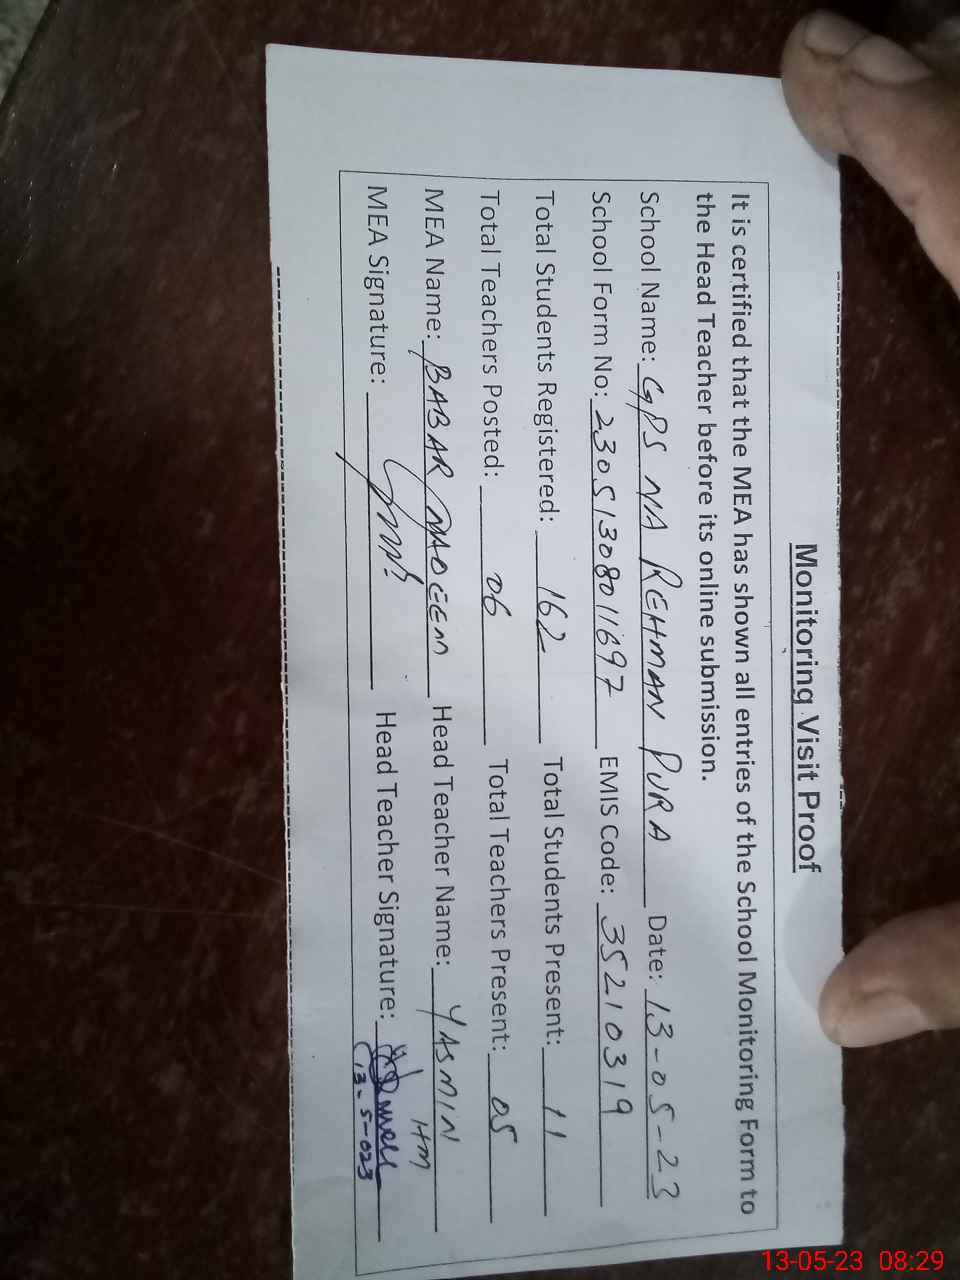 Monitoring Visit Proof
It is certified that the MEA has shown all entries of the School Monitoring Form to
the Head Teacher before its online submission.
School Name: GPS NA REHMAN PURA Date: 13-05-23
School Form No: 23051308011697 EMIS Code: 35210319
Total Students Registered: 162 Total Students Present: 11
Total Teachers Posted: 06 Total Teachers Present: 05
MEA Name: BABAR NADEEM Head Teacher Name: YASMIN HM
MEA Signature: Head Teacher Signature:
13-5-023
13-05-23 08:29